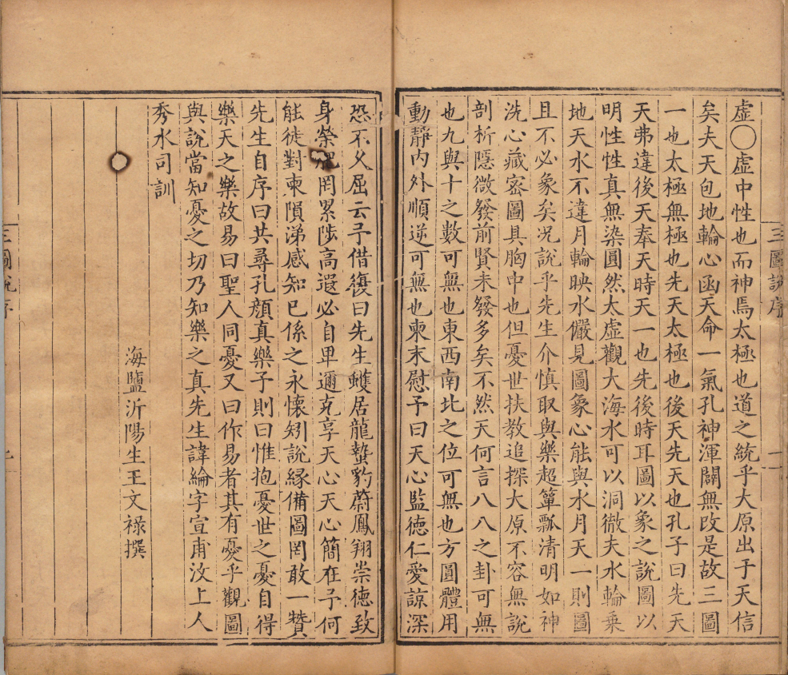 虛〇虛中性也而神焉太極也道之統乎大原出于天信
矣夫天包地輪心函天命一氣孔神渾闢無改是故三圖
一也太極無極也先天太極也後天先天也孔子曰先天
天弗違後天奉天時天一也先後時耳圖以象之說圖以
明性性真無染圓然太虛觀大海水可以洞徹夫水輪乗
地天水不違月輪映水儼見圖象心能與水月天一則圖
且不必象矣況說乎先生介慎取與樂超簞瓢清明如神
洗心藏密圖具胸中也但憂世扶教追探大原不容無說
剖析隱微發前賢未發多矣不然天何言八八之卦可無
也九與十之數可無也東西南北之位可無也方圓體用
動靜內外順逆可無也柬末慰予曰天心監德仁愛諒深
恐不乆屈云予借復曰先生蠖居龍蟄豹蔚鳳翔崇德致
身榮罔累陟高遐必自卑邇克享天心天心簡在予何
能徒對柬隕涕感知已係之永懷矧說緣備圖罔敢一贊
先生自序曰共尋孔顏真樂予則曰惟抱憂世之憂自得
樂天之樂故易曰聖人同憂又曰作易者其有憂乎觀圖
與說當知憂之切乃知樂之真先生諱綸字宣甫汶上人
秀水司訓
海鹽沂陽生王文祿撰
三圖說序
一
三圖說序